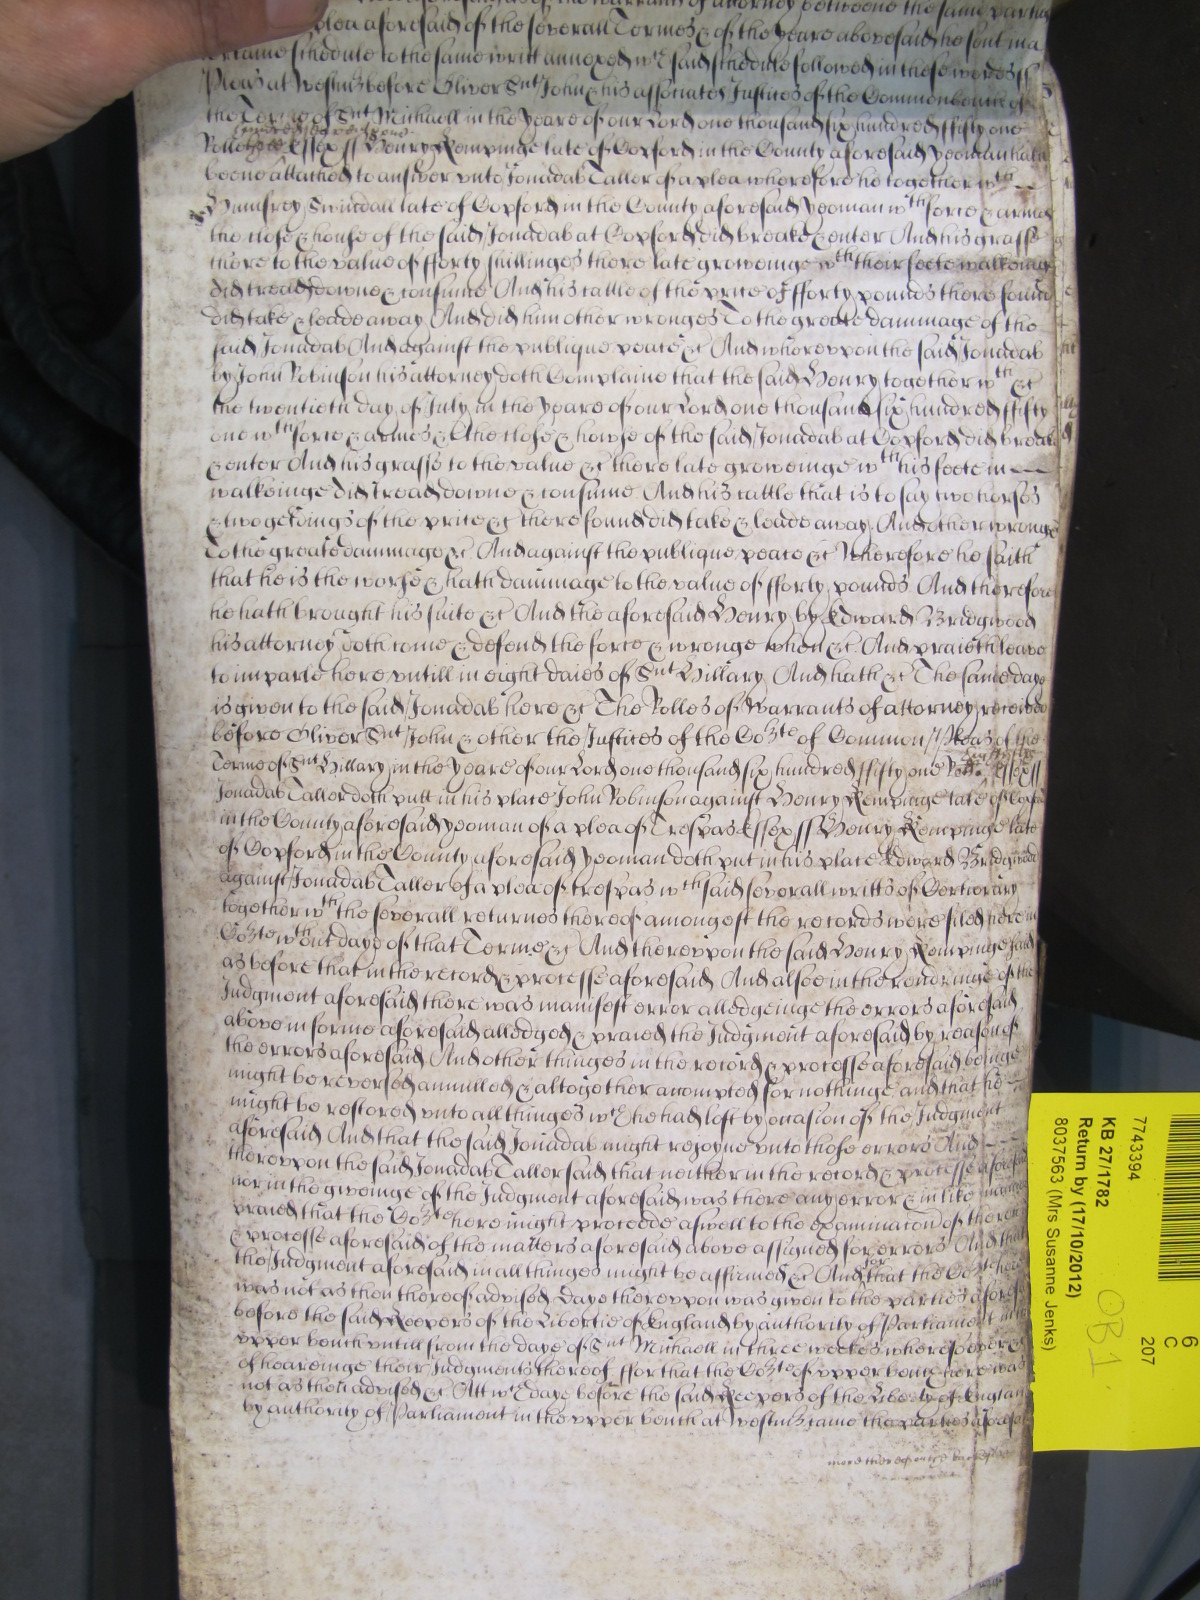 of the warrant of attorney betweene the same parties
plea aforesaid of the severall Termes & of the yeare abovesaid he sent in a
certaine schedule to the same writt annexed wch said schedule followeth in these words ss
Pleas at Westmr before Oliver Snt John & his associates Justices of the Common bench of
the Terme of Snt Michaell in the yeare of our Lord one thousand six hundred ffifty one
Rolle Essex ss Henry Kempinge late of Copford in the County aforesaid yeoman hath
beene attached to answer unto Jonadab Taller of a plea wherefore he together wth --
Humfrey Swindall late of Copford in the County aforesaid yeoman wth force & armes
the close & house of the said Jonadab at Copford did breake & enter And his grasse
there to the value of fforty shillinges there late groweinge wth their feete walkeinge
did tread downe & consume And his cattle of the price of fforty pounds there found
did take & leade away And did him other wronges To the greate dammage of the
said Jonadab And against the publique peace &c And whereupon the said Jonadab
by John Robinson his attorney doth Complaine that the said Henry together wth &c
the twentieth day of July in the yeare of our Lord one thousand six hundred ffifty
one wth force & armes &c the close & howse of the said Jonadab at Copford did breake
& enter And his grasse to the value &c there late groweinge wth his feete in --
walkeinge did tread downe & consume And his cattle that is to say two horses
& two geldings of the price &c there found did take & leade away And other wronges
To the greate dammage &c And against the publique peace &c Wherefore he saith
that he is the worse & hath dammage to the value of fforty pounds And therefore
he hath brought his suite &c And the aforesaid Henry by Edward Bridgwood
his attorney doth come & defend the force & wronge when &c And praieth leave
to imparle here untill in eight daies of Snt Hillary And hath &c The same daye
is given to the said Jonadab here &c The Rolles of Warrants of attorney received
before Oliver Snt John & other the Justices of the Corte of Common Pleas of the
Terme of Snt Hillary in the yeare of our Lord one thousand six hundred ffifty one Essex ss
Jonadab Taller doth putt in his place John Robinson against Henry Kempinge late of Copford
in the County aforesaid yeoman of a plea of Trespas Essex ss Henry Kempinge late
of Copford in the County aforesaid yeoman doth put in his place Edward Bridgwood
against Jonadab Taller of a plea of trespas wch said severall writts of Certiorary
together wth the severall returnes thereof amongest the records were filed here in
Corte wthout daye of that Terme &c And thereupon the said Henry Kempinge said
as before that in the record & processe aforesaid And alsoe in the rendringe of the
Judgment aforesaid there was manifest error alledgeinge the errors aforesaid
above in forme aforesaid alledged & praied the Judgment aforesaid by reason of
the errors aforesaid And other thinges in the record & processe aforesaid beinge
might be reversed annulled & altogether accompted for nothinge and that he --
might be restored unto all thinges wch he had lost by ocasion of the Judgment
aforesaid And that the said Jonadab might rejoyne unto those errors And --
thereupon the said Jonadab Taller said that neither in the record & processe aforesaid
nor in the giveinge of the Judgment aforesaid was there any error & in like manner
praied that the Corte here might proceede aswell to the examinacon of the record
& processe aforesaid of the matters aforesaid above assigned for errors And that
the Judgment aforesaid in all thinges might be affirmed &c And for that the Corte here
was not as then thereof advised daye thereupon was given to the parties aforesaid
before the said Keepers of the Libertie of England by authority of Parliament in the
upper bench untill from the daye of Snt Michaell in three weekes wheresoever &c
of heareinge their Judgments thereof ffor that the Corte of upper bench here was
not as then advised &c Att wch daye before the said Keepers of the Liberty of England
by authority of Parliament in the upper bench at Westmr came the parties aforesaid
more thereof on the backside
7743394
KB 27/1782
Return by (17/10/2012)
8037563 (Mrs Susanne Jenks)
6
C
207
OB1